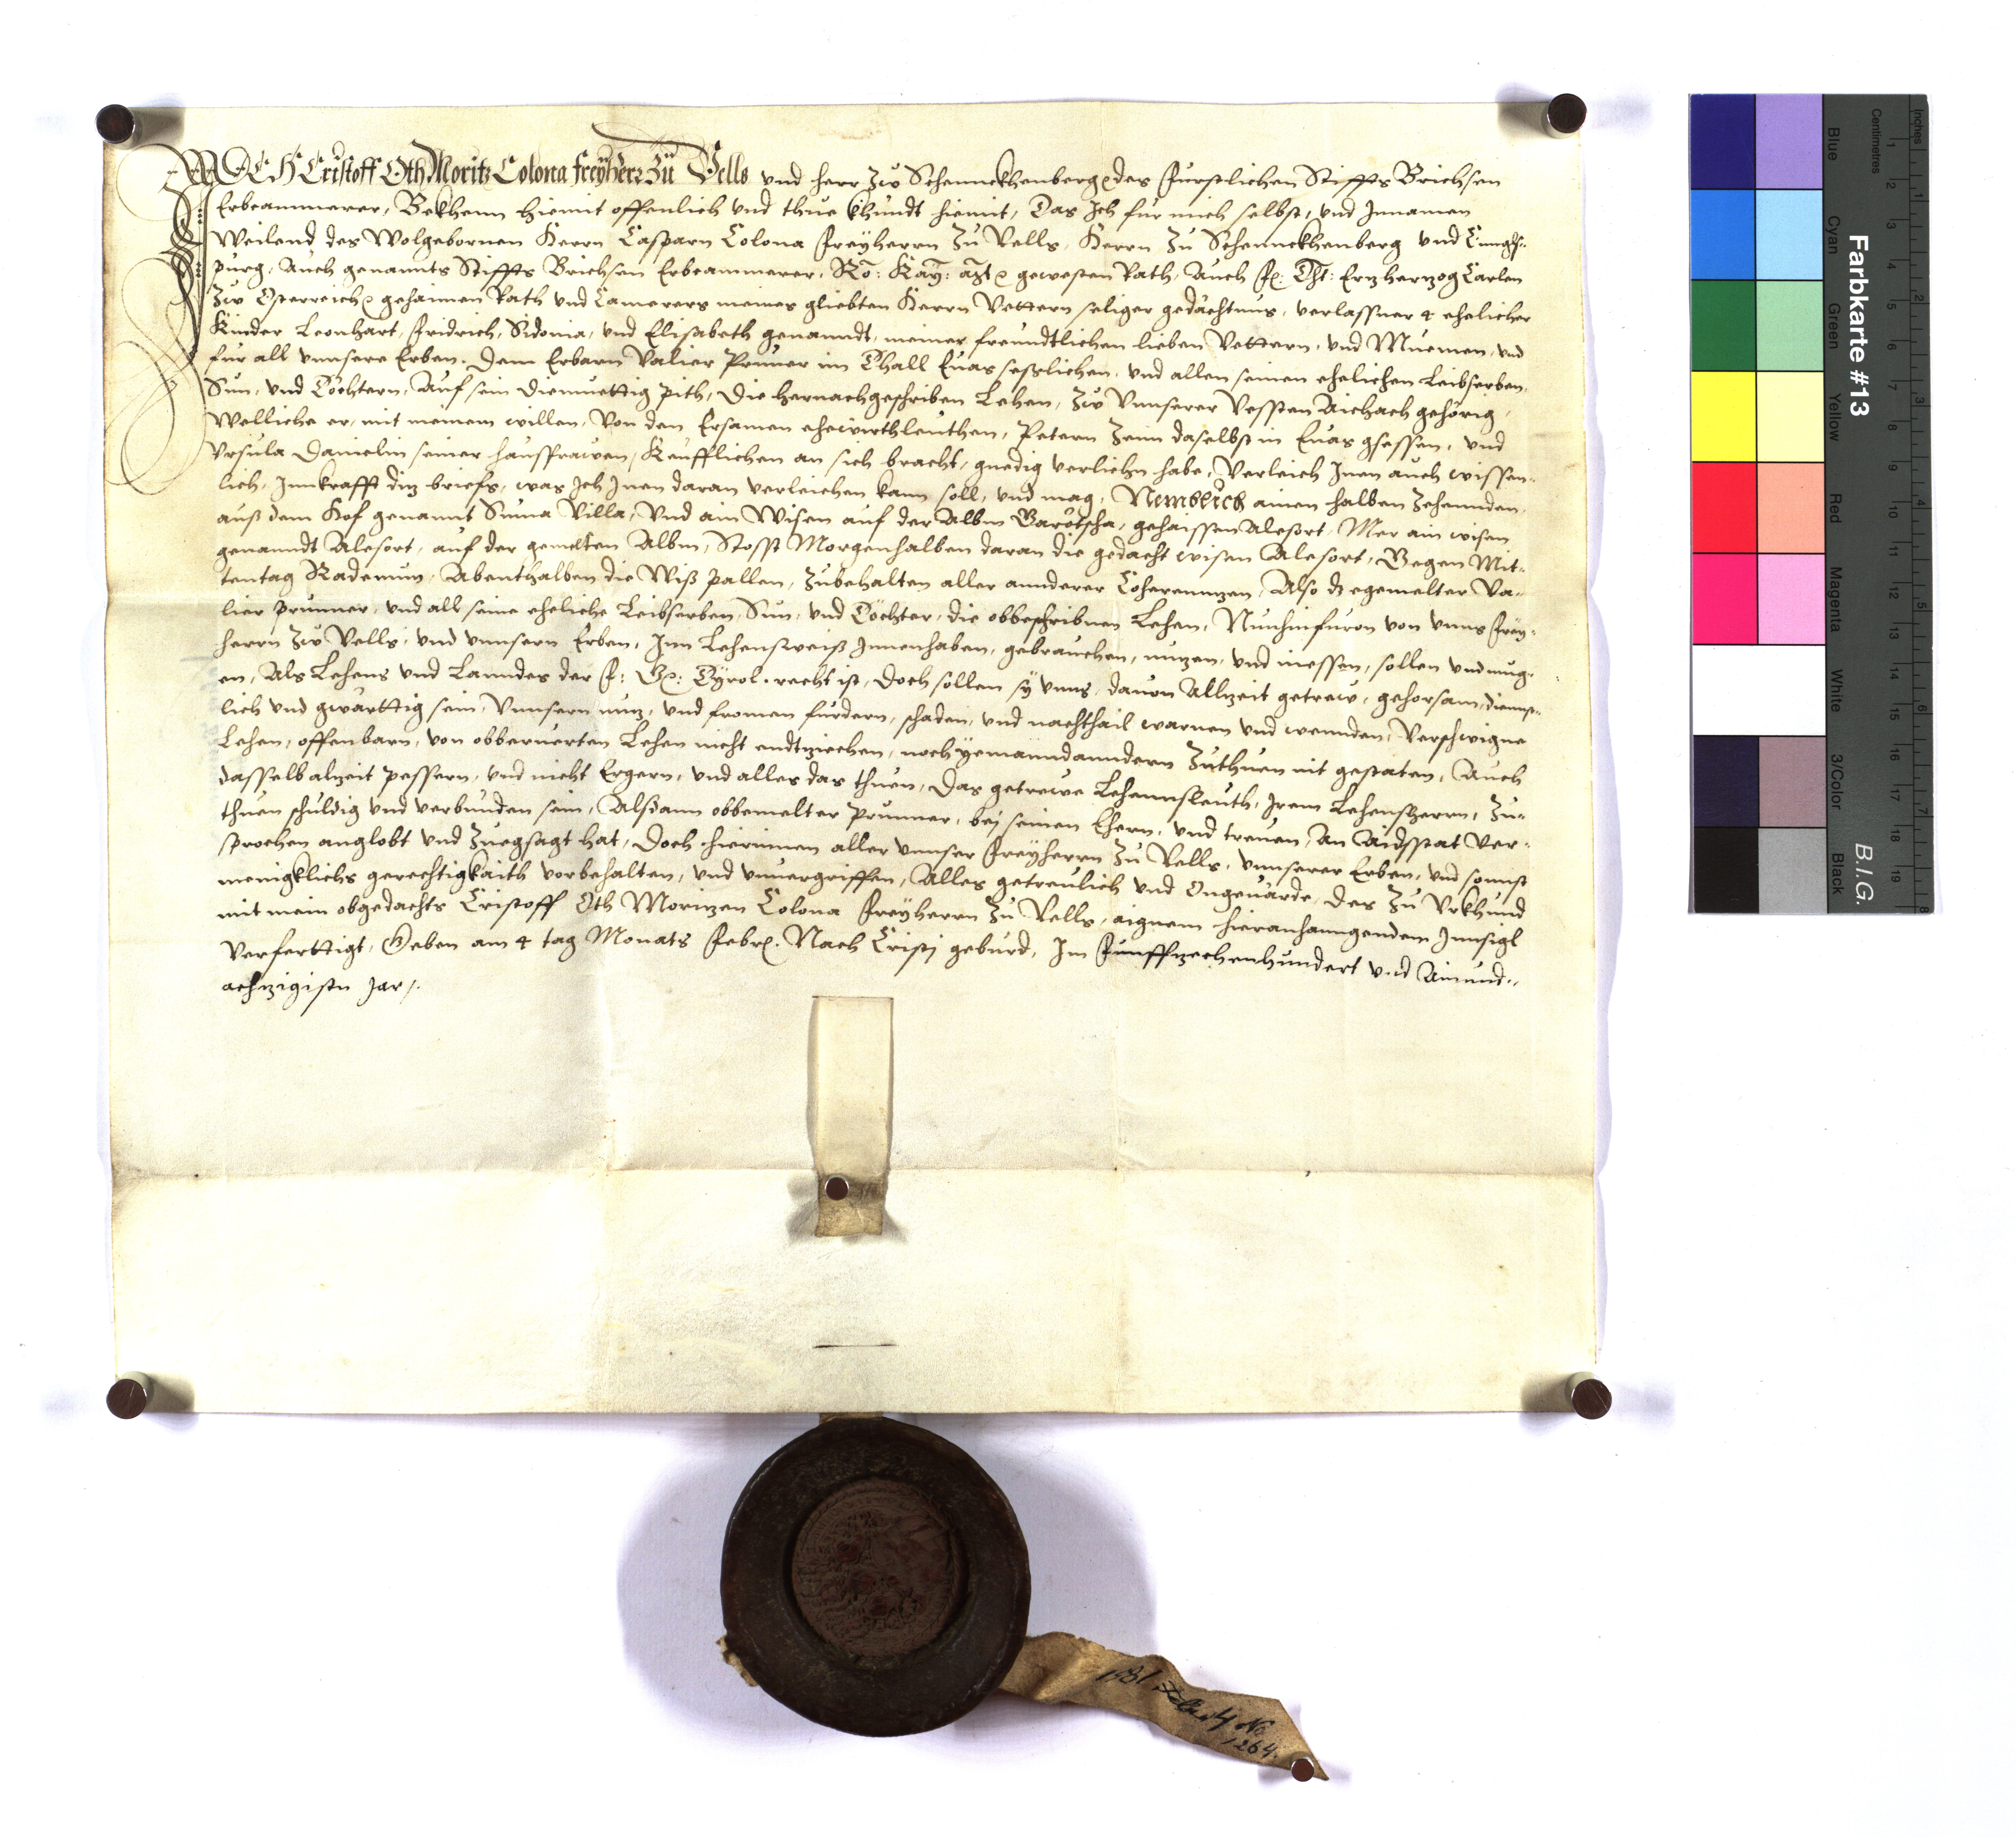 ICH Cristoff Oth Moritz Colona Freyherr zü Vells vnd herr zw Schennckhenberg des Fürstlichen Stiffts Brichsen
Erbcammerer, Bekhenn hiemit offenlich vnd thue khundt hiemit, Das Ich für mich selbst, vnd Innamen
Weilend des Wolgebornen Herrn Casparn Colona Freyherrn zu Vells, Herrn zu Schennckhenberg vnd
purg, Auch genannts Stiffts Brichsen Erbcammerer, Rö: Kay: gewesten Rath, Auch Fr: Dht: Erzherzog Carlen
zw Österreich gehaimen Rath vnd Camerers meines gliebten Herrn Vettern seliger gedächtnus, verlassner 4 ehelicher
Kinder Leonhart, Fridrich, Sidonia, vnd Elisabeth genanndt, meiner freundtlichen lieben Vettern, vnd Muemen, vnd
für all vnnsere Erben. Dem Erbarn Valier Pruner im Thall Euas sesslichen, vnd allen seinen ehelichen Leibserben,
Sün, vnd Töchtern, Auf sein diemuettig pith, Die hernachgeschriben Lehen, zw Vnnserer Vessten Aichach gehörig,
Welliche er, mit meinem willen, Von den Ersamen ehewirthleuthen, Petern Zenn daselbst in Euas gsessen, vnd
Vrsula Daimelin seiner haussfrawen, Keufflichen an sich bracht, gnedig verliehn habe, Verleich Inen auch wissen-
lich, Innkrafft diz briefs, was Ich Inen daran verleichen kann soll, vnd mag, Nemblich ainen halben Zehennden,
auß dem Hof genannt Suma Villa, Vnd ain Wisen auf der Albm Garötscha, gehaissen Alesort, Mer ain wisen
genanndt Alesort, auf der gemelten Albm, Stosst Morgenhalben daran die gedacht wisen Alesort, Gegen Mit-
tentag Rademun, Abenthalben die Wiß pallen, zubehalten aller annderer Coherennzen, Also dz egemelter Va-
lier Prunner, vnd all seine eheliche Leibserben, Sün, vnd Töchter, die obbeschribnen Lehen, Nunhinfuron von vnns Frey-
herrn zw Vells, vnd vnnsern Erben, Inn Lehensweiß Innenhaben, gebrauchen, nuzen, vnd niessen, sollen vnd mug-
en, Als Lehens vnd Lanndes der F: Gr: Tyrol. recht ist, Doch sollen sy vnns, dauon Allzeit getrew, gehorsam, dienst-
lich vnd gwärttig sein, Vnnsern nuz, vnd fromen fürdern, schaden, vnd nachthail warnen vnd wennden, Verschwigne
Lehen, offenbarn, von obberuerten Lehen nicht endtziechen, noch yemanndanndern zuthuen nit gestaten, Auch
dasselb alzeit pessern, vnd nicht Ergern, vnd alles das thuen, Das getrewe Lehennsleuth, Irem Lehensherrn, zu-
thuen schuldig vnd verbunden sein, Alsdann obbemelter Prunner, bej seinen Ehern, vnd treuen, An Aidsstat Ver-
sprochen anglobt vnd zuegsagt hat, Doch hierinnen aller vnnser Freyherrn zu Vells, vnnserer Erben, vnd sonnst
menigklichs gerechtigkaith vorbehalten, vnd vnuergriffen, Alles getreulich vnd Ongeuärde, Des zu Vrkhund
mit mein obgedachts Cristoff Oth Morizen Colona Freyherrn zu Vells, aignem hieranhanngendem Innsigl
Verferttigt, Geben am 4 tag Monats Febr. Nach Cristj geburd, Im Funffzechenhundert vnd Ainund-
achzigistn Jar.
1581 Febr 4 No
1264.
Farbkarte #13
B.I.G.
Inches
Centimetres
Blue
Cyan
Green
Yellow
Red
Magenta
White
3/Color
Black
1 2 3 4 5 6 7 8
1 2 3 4 5 6 7 8 9 10 11 12 13 14 15 16 17 18 19